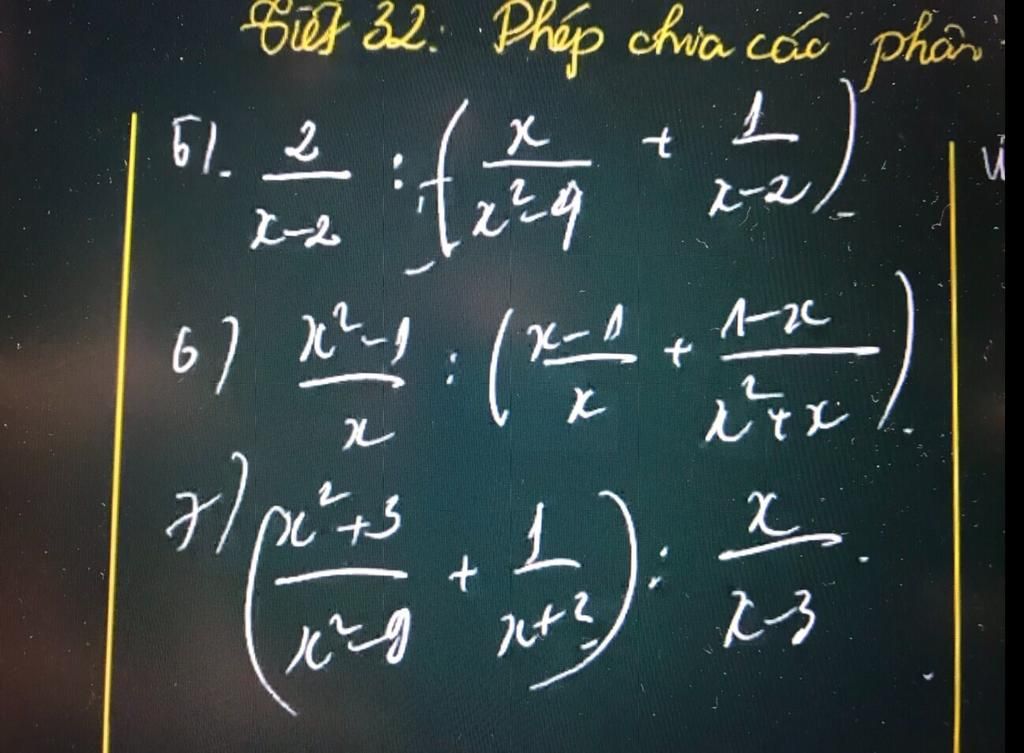 Tiết 32: Phép chia các phân
5). 2/(x-2) : (x/(x²-4) + 1/(x-2))
6) (x²-1)/x : ((x-1)/x + (1-x)/(x²+x)).
7) ((x²+3)/(x²-9) + 1/(x+3)) : x/(x-3).